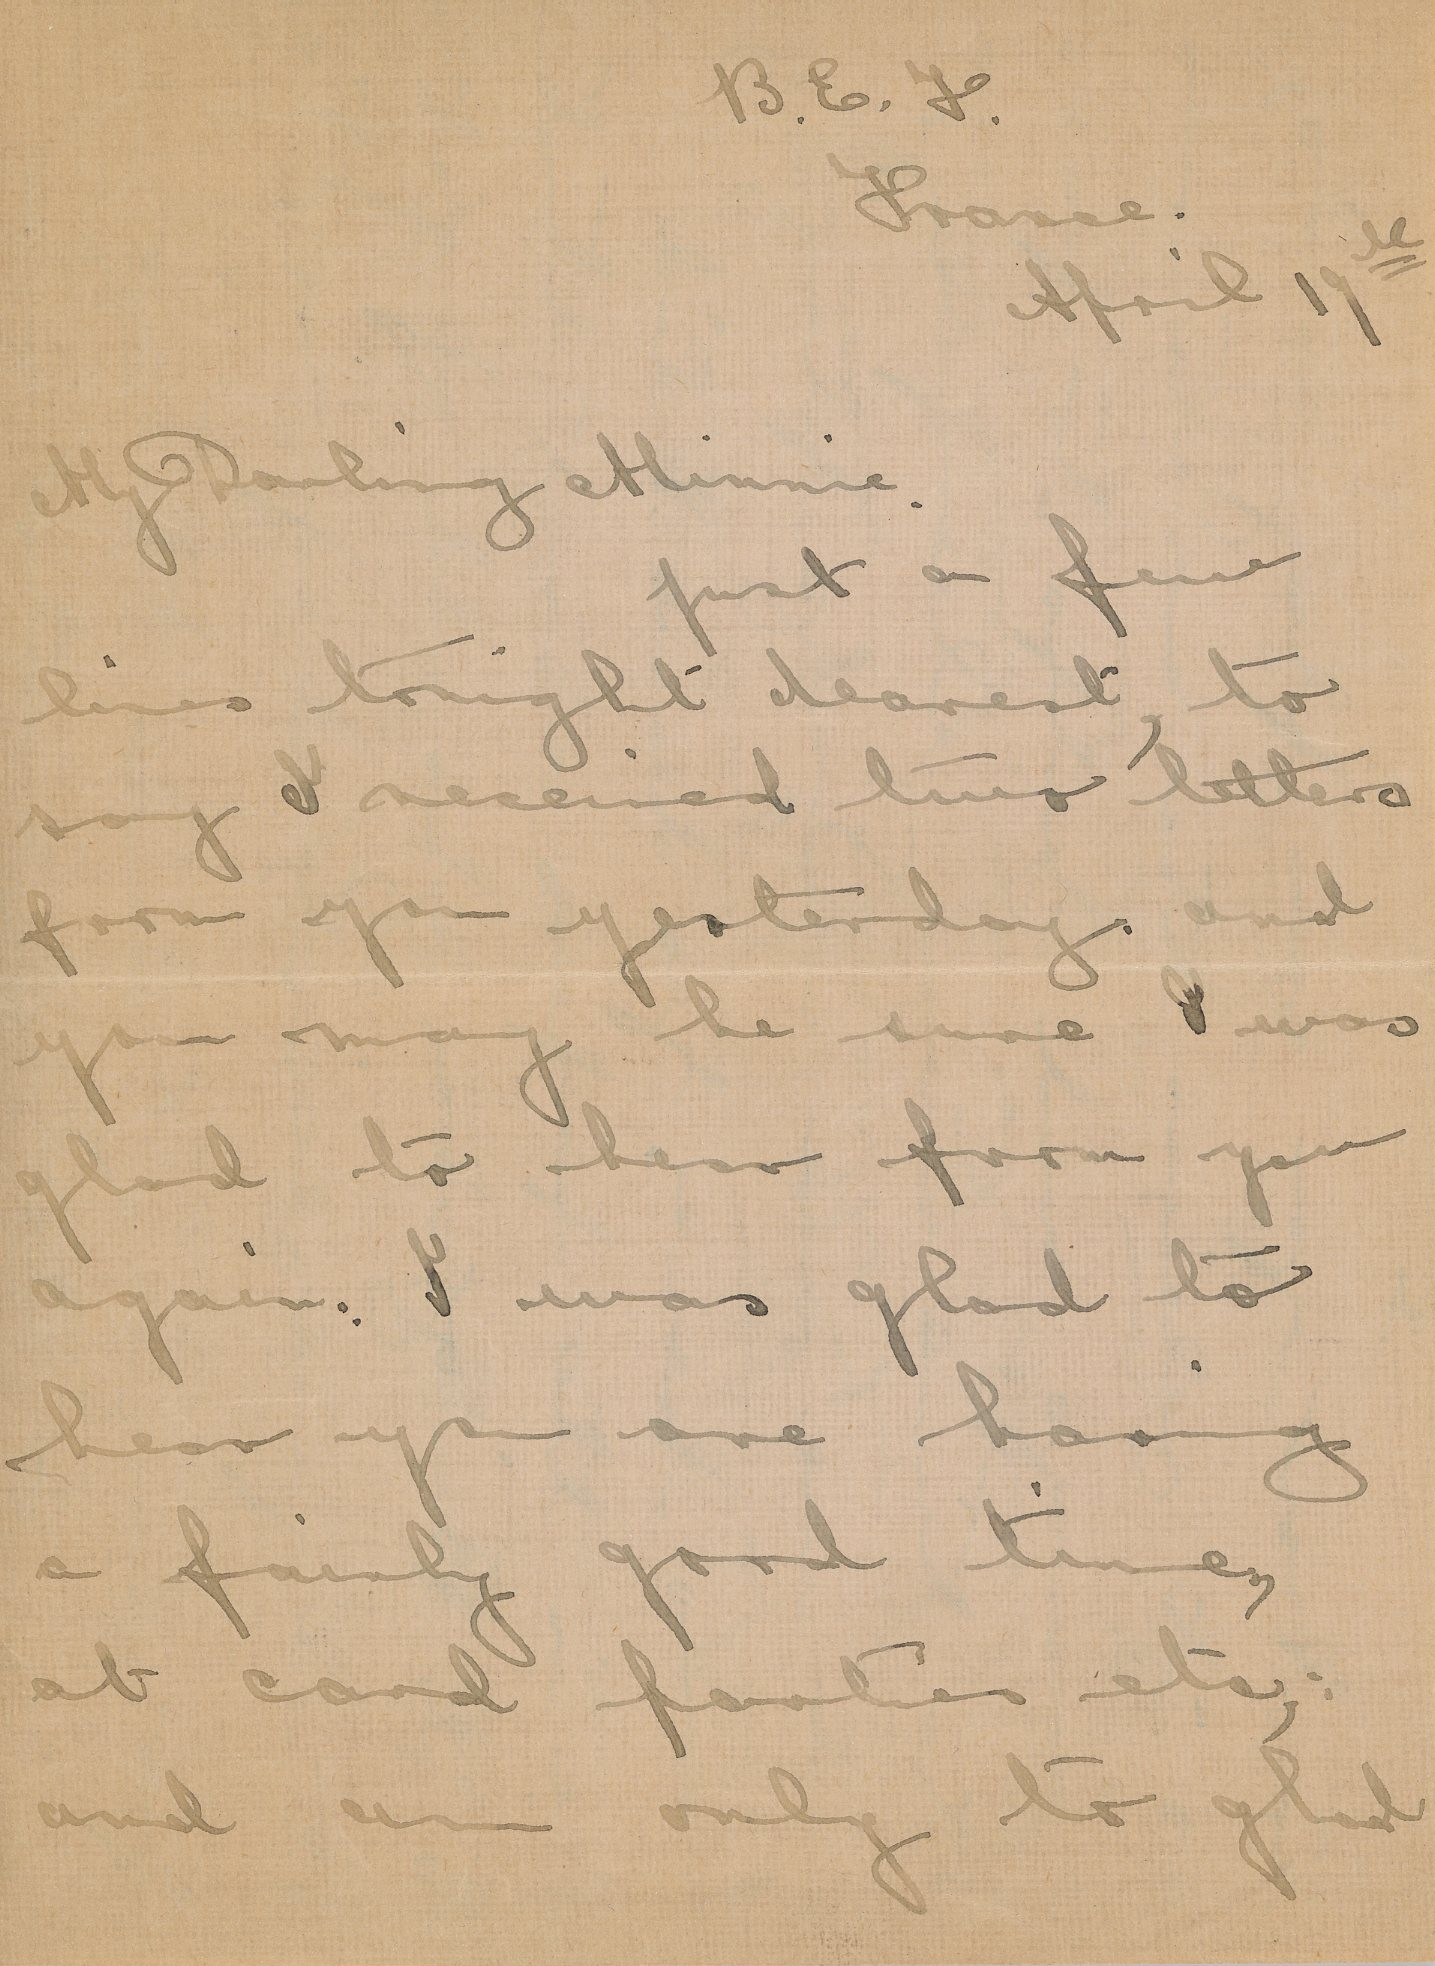 B. E. F.
France.
April 19th
My Darling Minnie.
just a few
lines tonight dearest, to
say I received two letters
from you yesterday. and
you may be sure I was
glad to hear from you
again. I was glad to
hear you are having
a fairly good time,
at card parties etc,.
and am only to glad